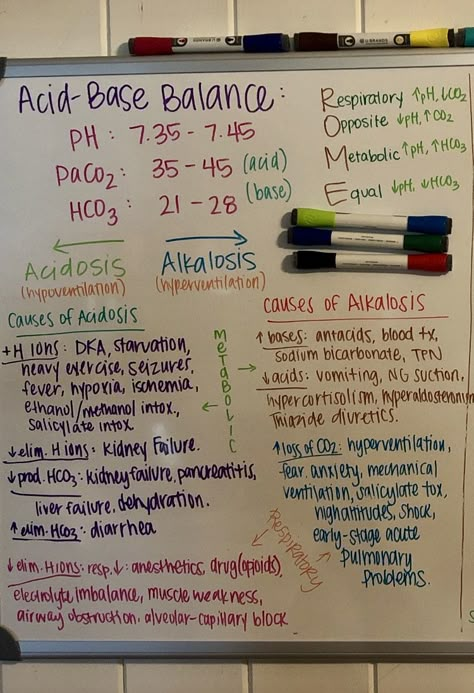 Acid-Base Balance:
PH: 7.35 - 7.45
PaCO₂: 35 - 45 (acid)
HCO₃: 21 - 28 (base)
Respiratory ↑pH, ↓CO₂
Opposite ↓pH, ↑CO₂
Metabolic ↑pH, ↑HCO₃
Equal ↓pH, ↓HCO₃
← Acidosis
(hypoventilation)
→ Alkalosis
(hyperventilation)
Causes of Acidosis
+H IONS: DKA, starvation,
heavy exercise, seizures,
fever, hypoxia, ischemia,
ethanol/methanol intox.,
salicylate intox.
↓elim. H ions: Kidney Failure.
↓prod. HCO₃: kidney failure, pancreatitis,
liver failure, dehydration.
↑elim. HCO₃: diarrhea
METABOLIC
← →
Causes of Alkalosis
↑ bases: antacids, blood tx,
sodium bicarbonate, TPN
↓acids: vomiting, NG suction,
hypercortisolism, hyperaldosteronism
Thiazide diuretics.
↑loss of CO₂: hyperventilation,
fear, anxiety, mechanical
ventilation, salicylate tox,
high altitudes, shock,
early-stage acute
pulmonary
problems.
RESPIRATORY
↙ ↗
↓elim. H ions: resp.↓: anesthetics, drug (opioids),
electrolyte imbalance, muscle weakness,
airway obstruction, alveolar-capillary block